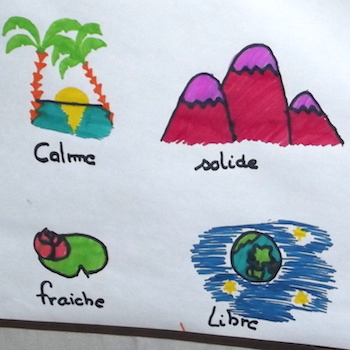 Calme
solide
fraiche
Libre